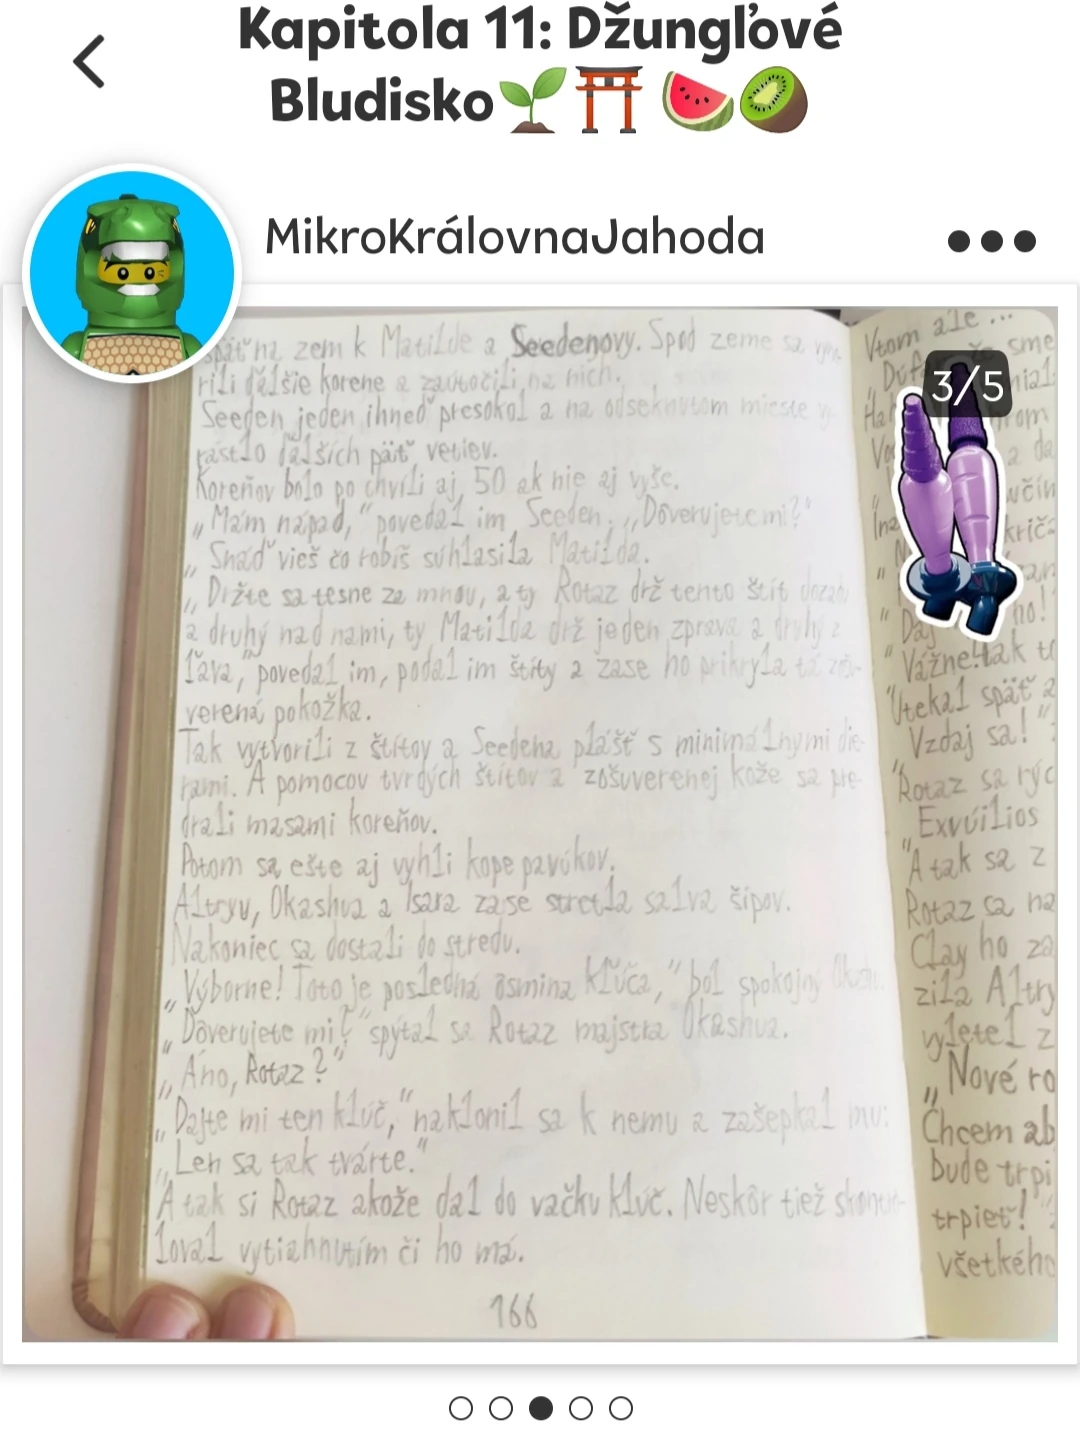 Kapitola 11: Džungľové
Bludisko
MikroKrálovnaJahoda
3/5
späť na zem k Matilde a Seedenovy. Spod zeme sa
rili ďalšie korene a zautočili na nich.
Seeden jeden ihneď presokol a na odseknutom mieste vy-
rástlo ďalších päiť vetiev.
Koreňov bolo po chvíli aj, 50 ak nie aj vyše.
„Mám nápad,“ povedal im Seeden. „Dôverujete mi?“
„Snáď vieš čo robíš súhlasila Matilda.
„Držte sa tesne za mnou, a ty Rotaz drž tento štít dozadu
a druhý nad nami, ty Matilda drž jeden zprava a druhý z
ľava,“ povedal im, podal im štíty a zase ho prikryla tá zošu-
verená pokožka.
Tak vytvorili z štítov a Seedena plášť s minimálnymi die-
rami. A pomocov tvrdých štítov a zošuverenej kože sa pre-
drali masami koreňov.
Potom sa ešte aj vyhli kope pavúkov.
Altryu, Okashua a Isara zase stretla salva šípov.
Nakoniec sa dostali do stredu.
„Výborne! Toto je posledná osmina kľúča,“ bol spokojný
„Dôverujete mi?“ spýtal sa Rotaz majstra Okashua.
„Áno, Rotaz?“
„Dajte mi ten kľúč,“ naklonil sa k nemu a zašepkal mu:
„Len sa tak tvárte.“
A tak si Rotaz akože dal do vačku kľúč. Neskôr tiež skontro-
loval vytiahnutím či ho má.
166
Vtom ale ...
sme
a da
včín
kriča
ho!
Vážne! tak to
Utekal späť a
Vzdaj sa!“
Rotaz sa rýc
„Exvúilios
A tak sa z
Rotaz sa na
Clay ho za
zila Altry
vyletel z
„Nové ro
Chcem ab
bude trpi
trpieť!“
všetkého